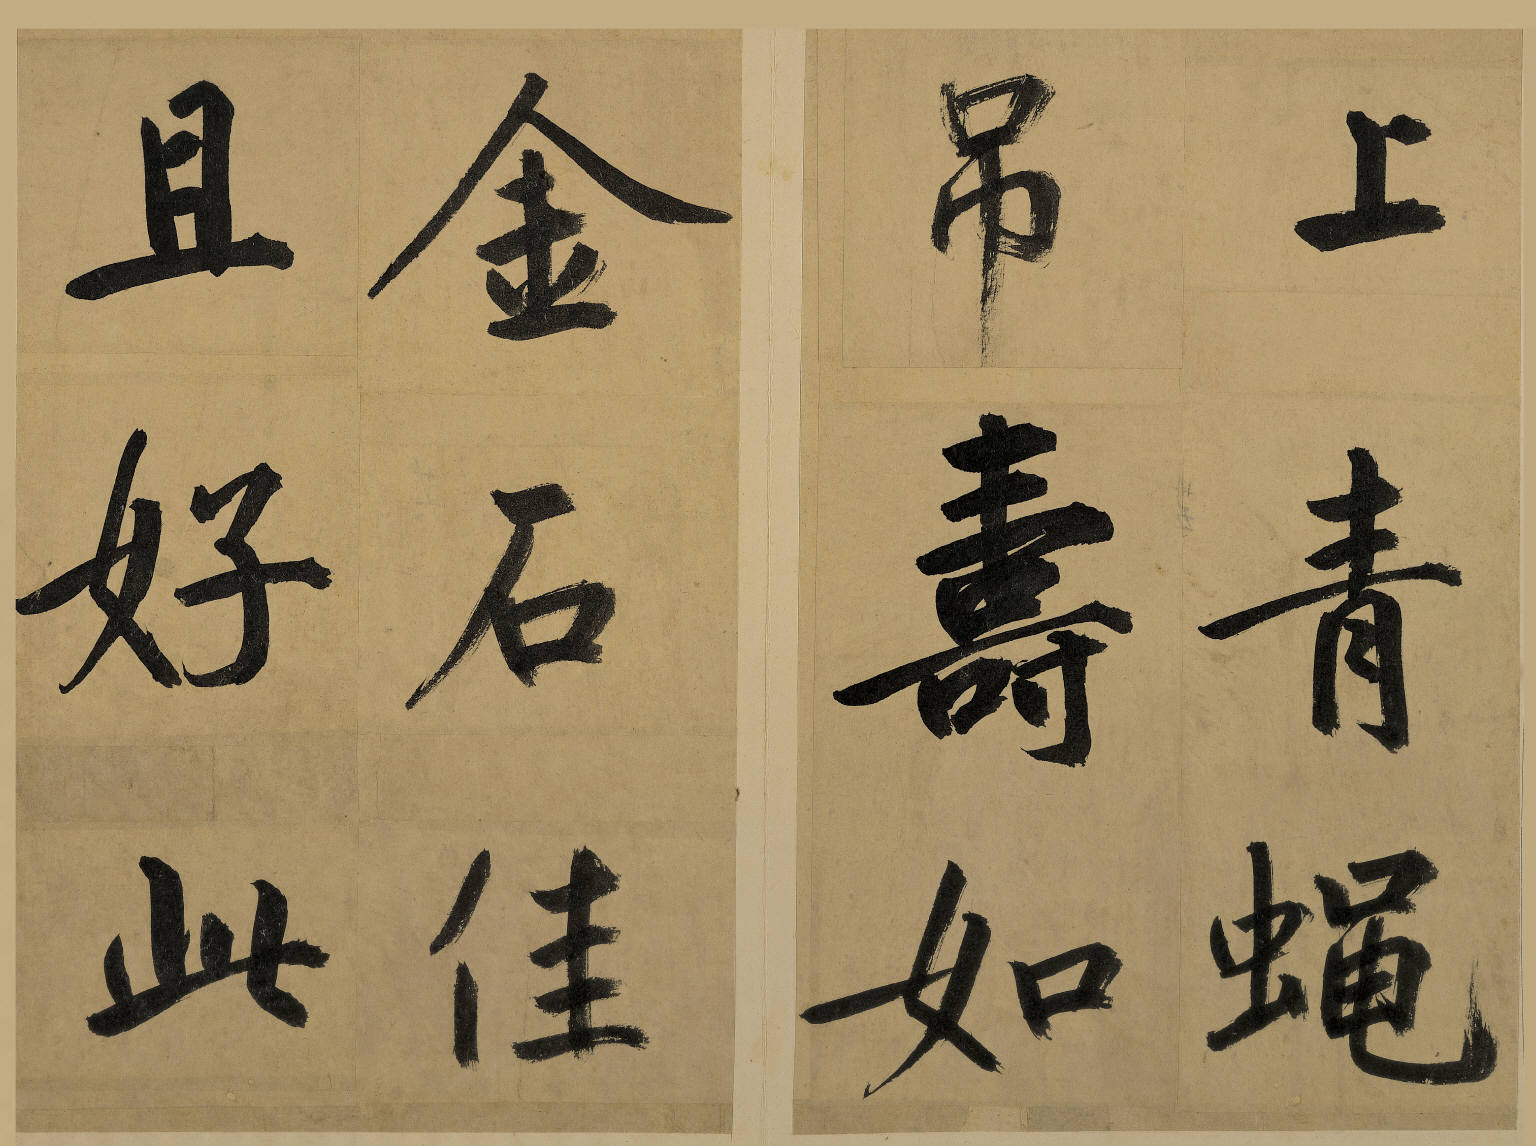 上青蝇
吊壽如
金石佳
且好此